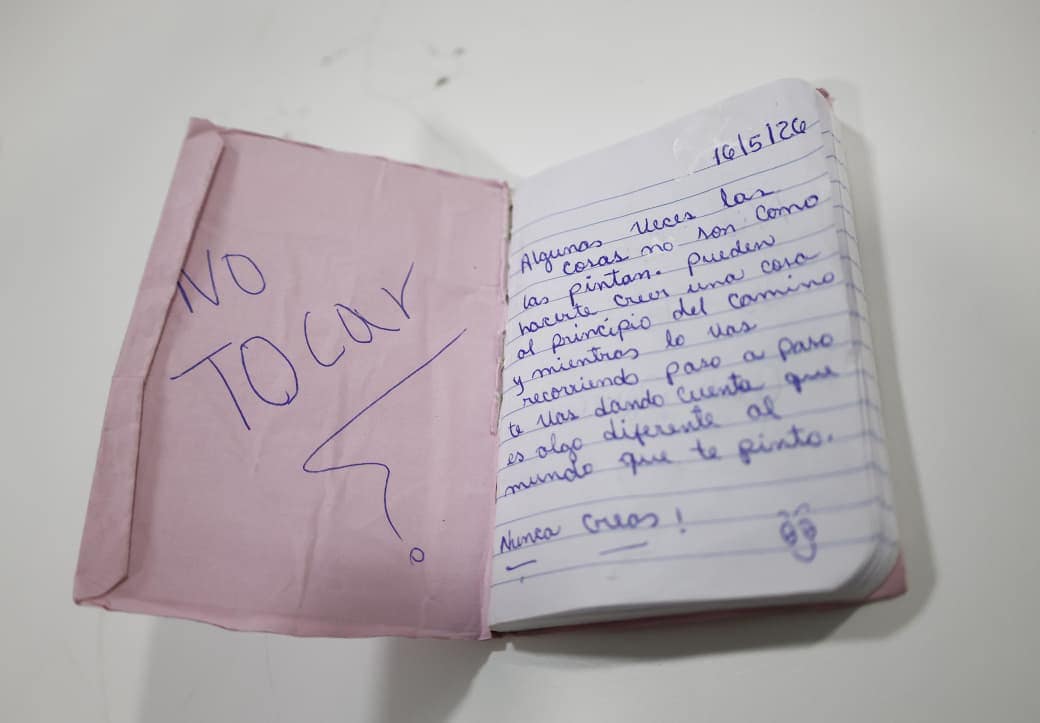 NO
TOCar
16/5/26
Algunas veces las
cosas no son como
las pintan. Pueden
hacerte creer una cosa
al principio del camino
y mientras lo vas
recorriendo paso a paso
te vas dando cuenta que
es algo diferente al
mundo que te pinto.
Nunca creas!